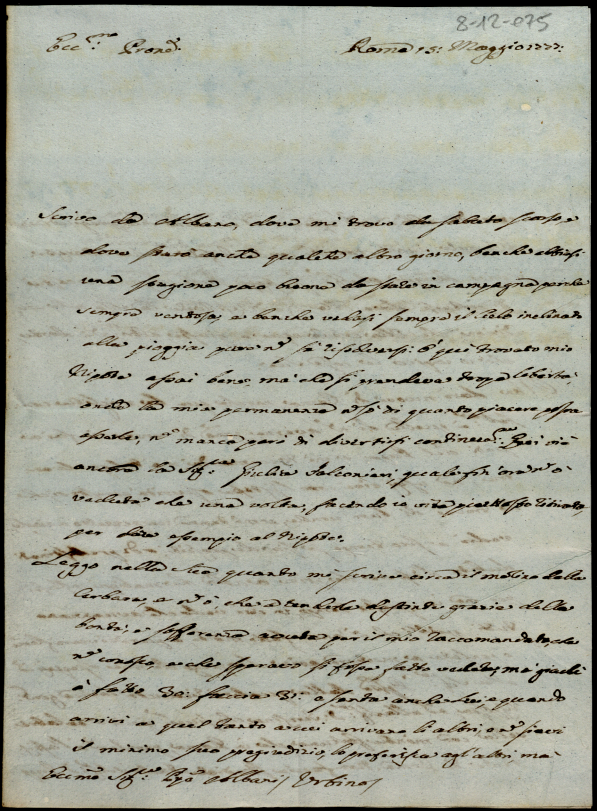 8-12-075
Ecc.mo Pron.e Roma 15: Maggio 1777:
Scrivo da Albano, dove mi trovo da sabato scorso, e
dove starò anche qualche altro giorno, benche abbiasi
una stagione poco buona da stare in campagna perche
sempre ventosa, e benche vedasi sempre il Cielo inclinato
alla pioggia pure n.o sà risolversi. Ò qui trovato mio
Nipote assai bene, mà che si prendeva troppa libertà,
onde la mia permanenza n.o sò di quanto piacere possa
esserle, n.o manca però di divertirsi
ancora la Sig.ra Giulia Falconieri, quale fin ora n.o ò
veduta che una volta, facendo io vita piuttosto ritirata,
per dare esempio al Nipote.
Leggo nella sua quanto mi scrive circa il molino della
e n.o ò, che a renderle distinte grazie della
bontà, e sofferenza avuta per il mio raccomandato, che
n.o conosco, e che speravo si fosse fatto vedere, mà giacchè
à fatto senta anche Lei, e quando
arrivi a quel tanto a cui arrivano li altri, e n.o siavi
il minimo suo pregiudizio, lo preferisca agl'altri, mà
Ecc.mo Sig.r Albani / Urbino /